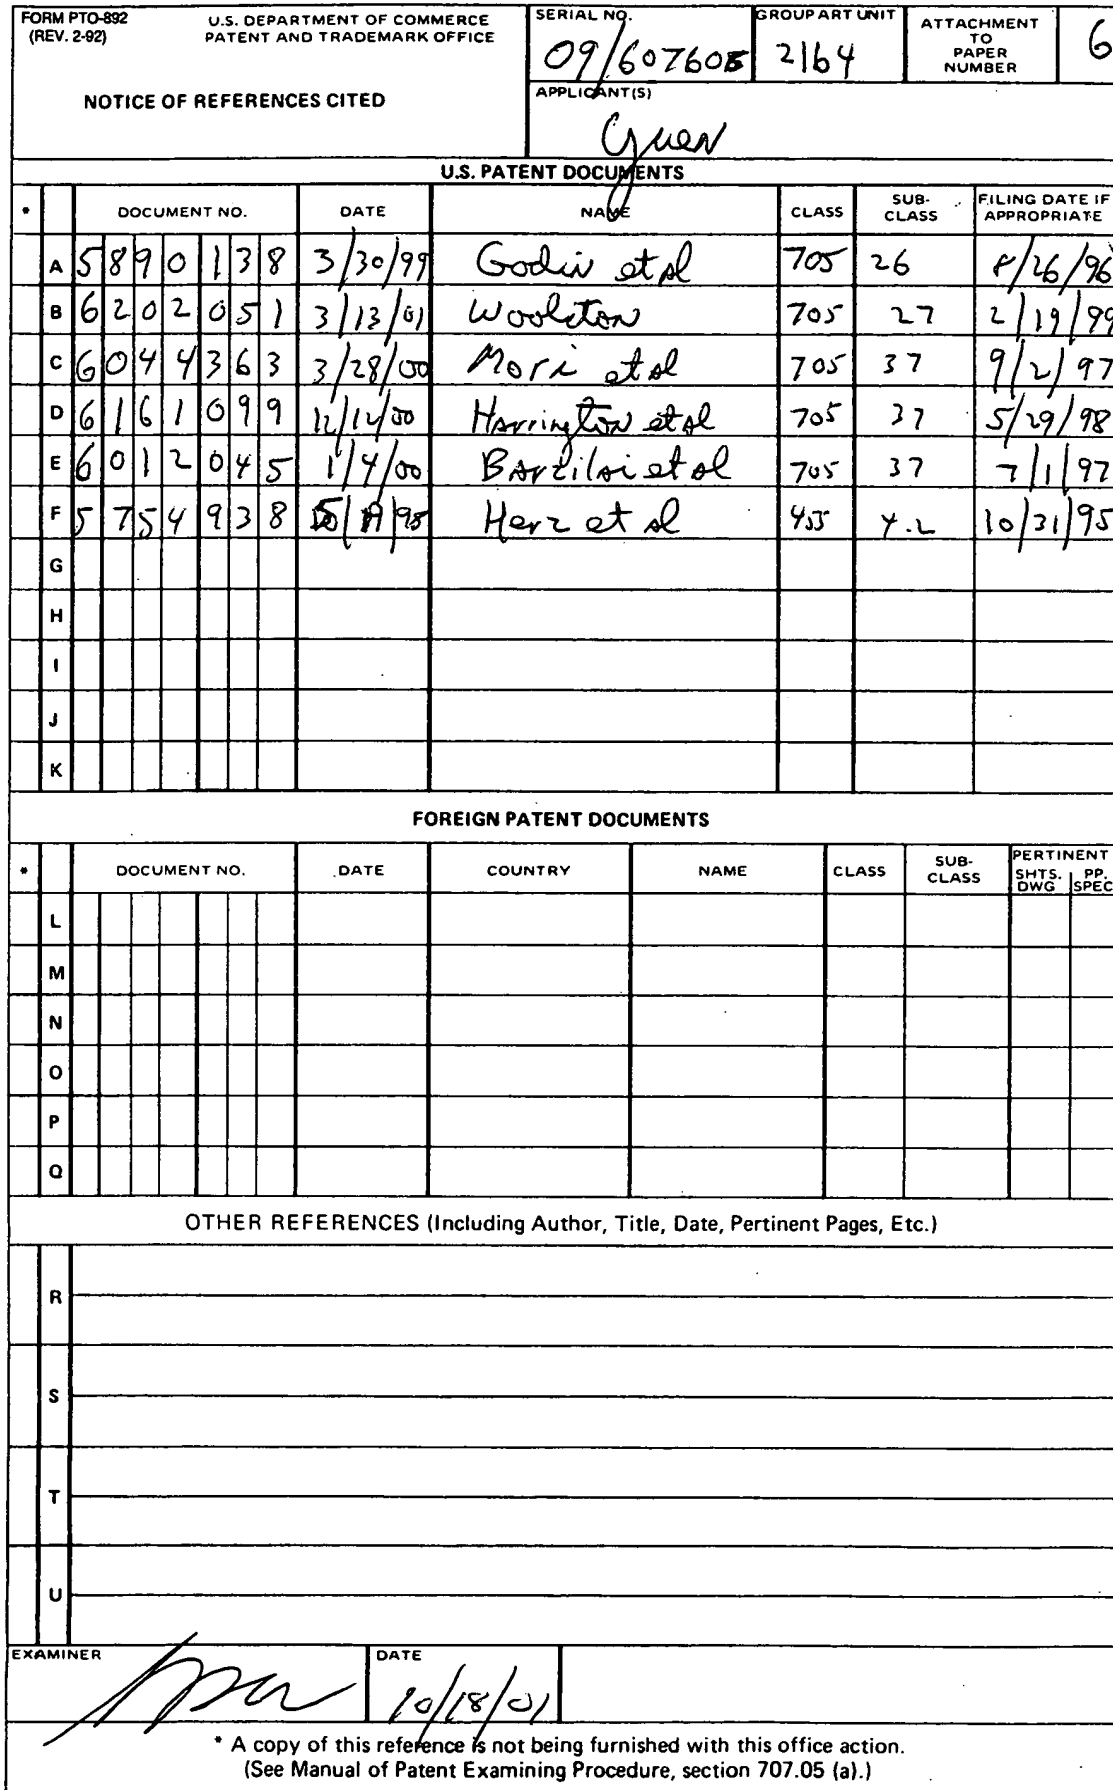 FORM PTO-892
(REV. 2-92)
U.S. DEPARTMENT OF COMMERCE
PATENT AND TRADEMARK OFFICE
NOTICE OF REFERENCES CITED
SERIAL NO.
09/607605
GROUP ART UNIT
2164
ATTACHMENT
TO
PAPER
NUMBER
6
APPLICANT(S)
U.S. PATENT DOCUMENTS
* DOCUMENT NO. DATE NAME CLASS SUB-CLASS FILING DATE IF APPROPRIATE
A 5890138 3/30/99 Godin et al 705 26 8/26/96
B 6202051 3/13/01 Woolston 705 27 2/19/99
C 6044363 3/28/00 Mori et al 705 37 9/2/97
D 6161099 12/12/00 Harrington et al 705 37 5/29/98
E 6012045 1/4/00 Barzilai et al 705 37 7/1/97
F 5754938 Herz et al 455 4.2 10/31/95
G
H
I
J
K
FOREIGN PATENT DOCUMENTS
* DOCUMENT NO. DATE COUNTRY NAME CLASS SUB-CLASS PERTINENT SHTS. DWG PP. SPEC
L
M
N
O
P
Q
OTHER REFERENCES (Including Author, Title, Date, Pertinent Pages, Etc.)
R
S
T
U
EXAMINER
DATE
10/18/01
* A copy of this reference is not being furnished with this office action.
(See Manual of Patent Examining Procedure, section 707.05 (a).)